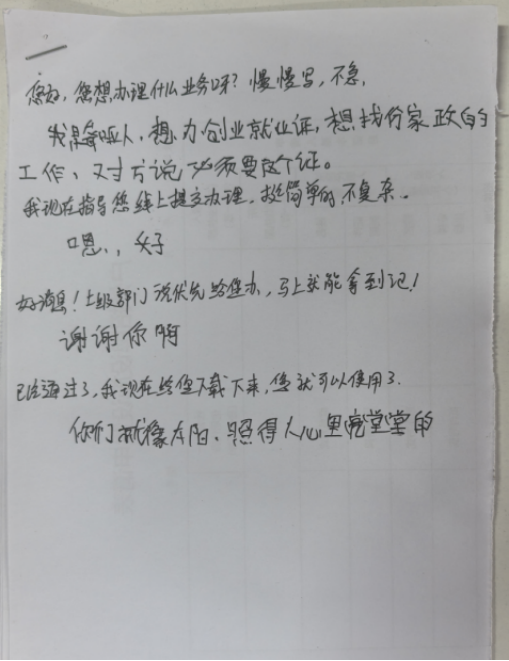 您好，您想办理什么业务呀？慢慢写，不急，
我是聋哑人，想办创业就业证，想找份家政的
工作，对方说必须要这个证。
我现在指导您线上提交办理，挺简单的，不复杂。
嗯，，好
好消息！上级部门说优先给您办，马上就能拿到证！
谢谢你啊
已经通过了，我现在给您下载下来，您就可以使用了。
你们就像太阳、照得人心里亮堂堂的